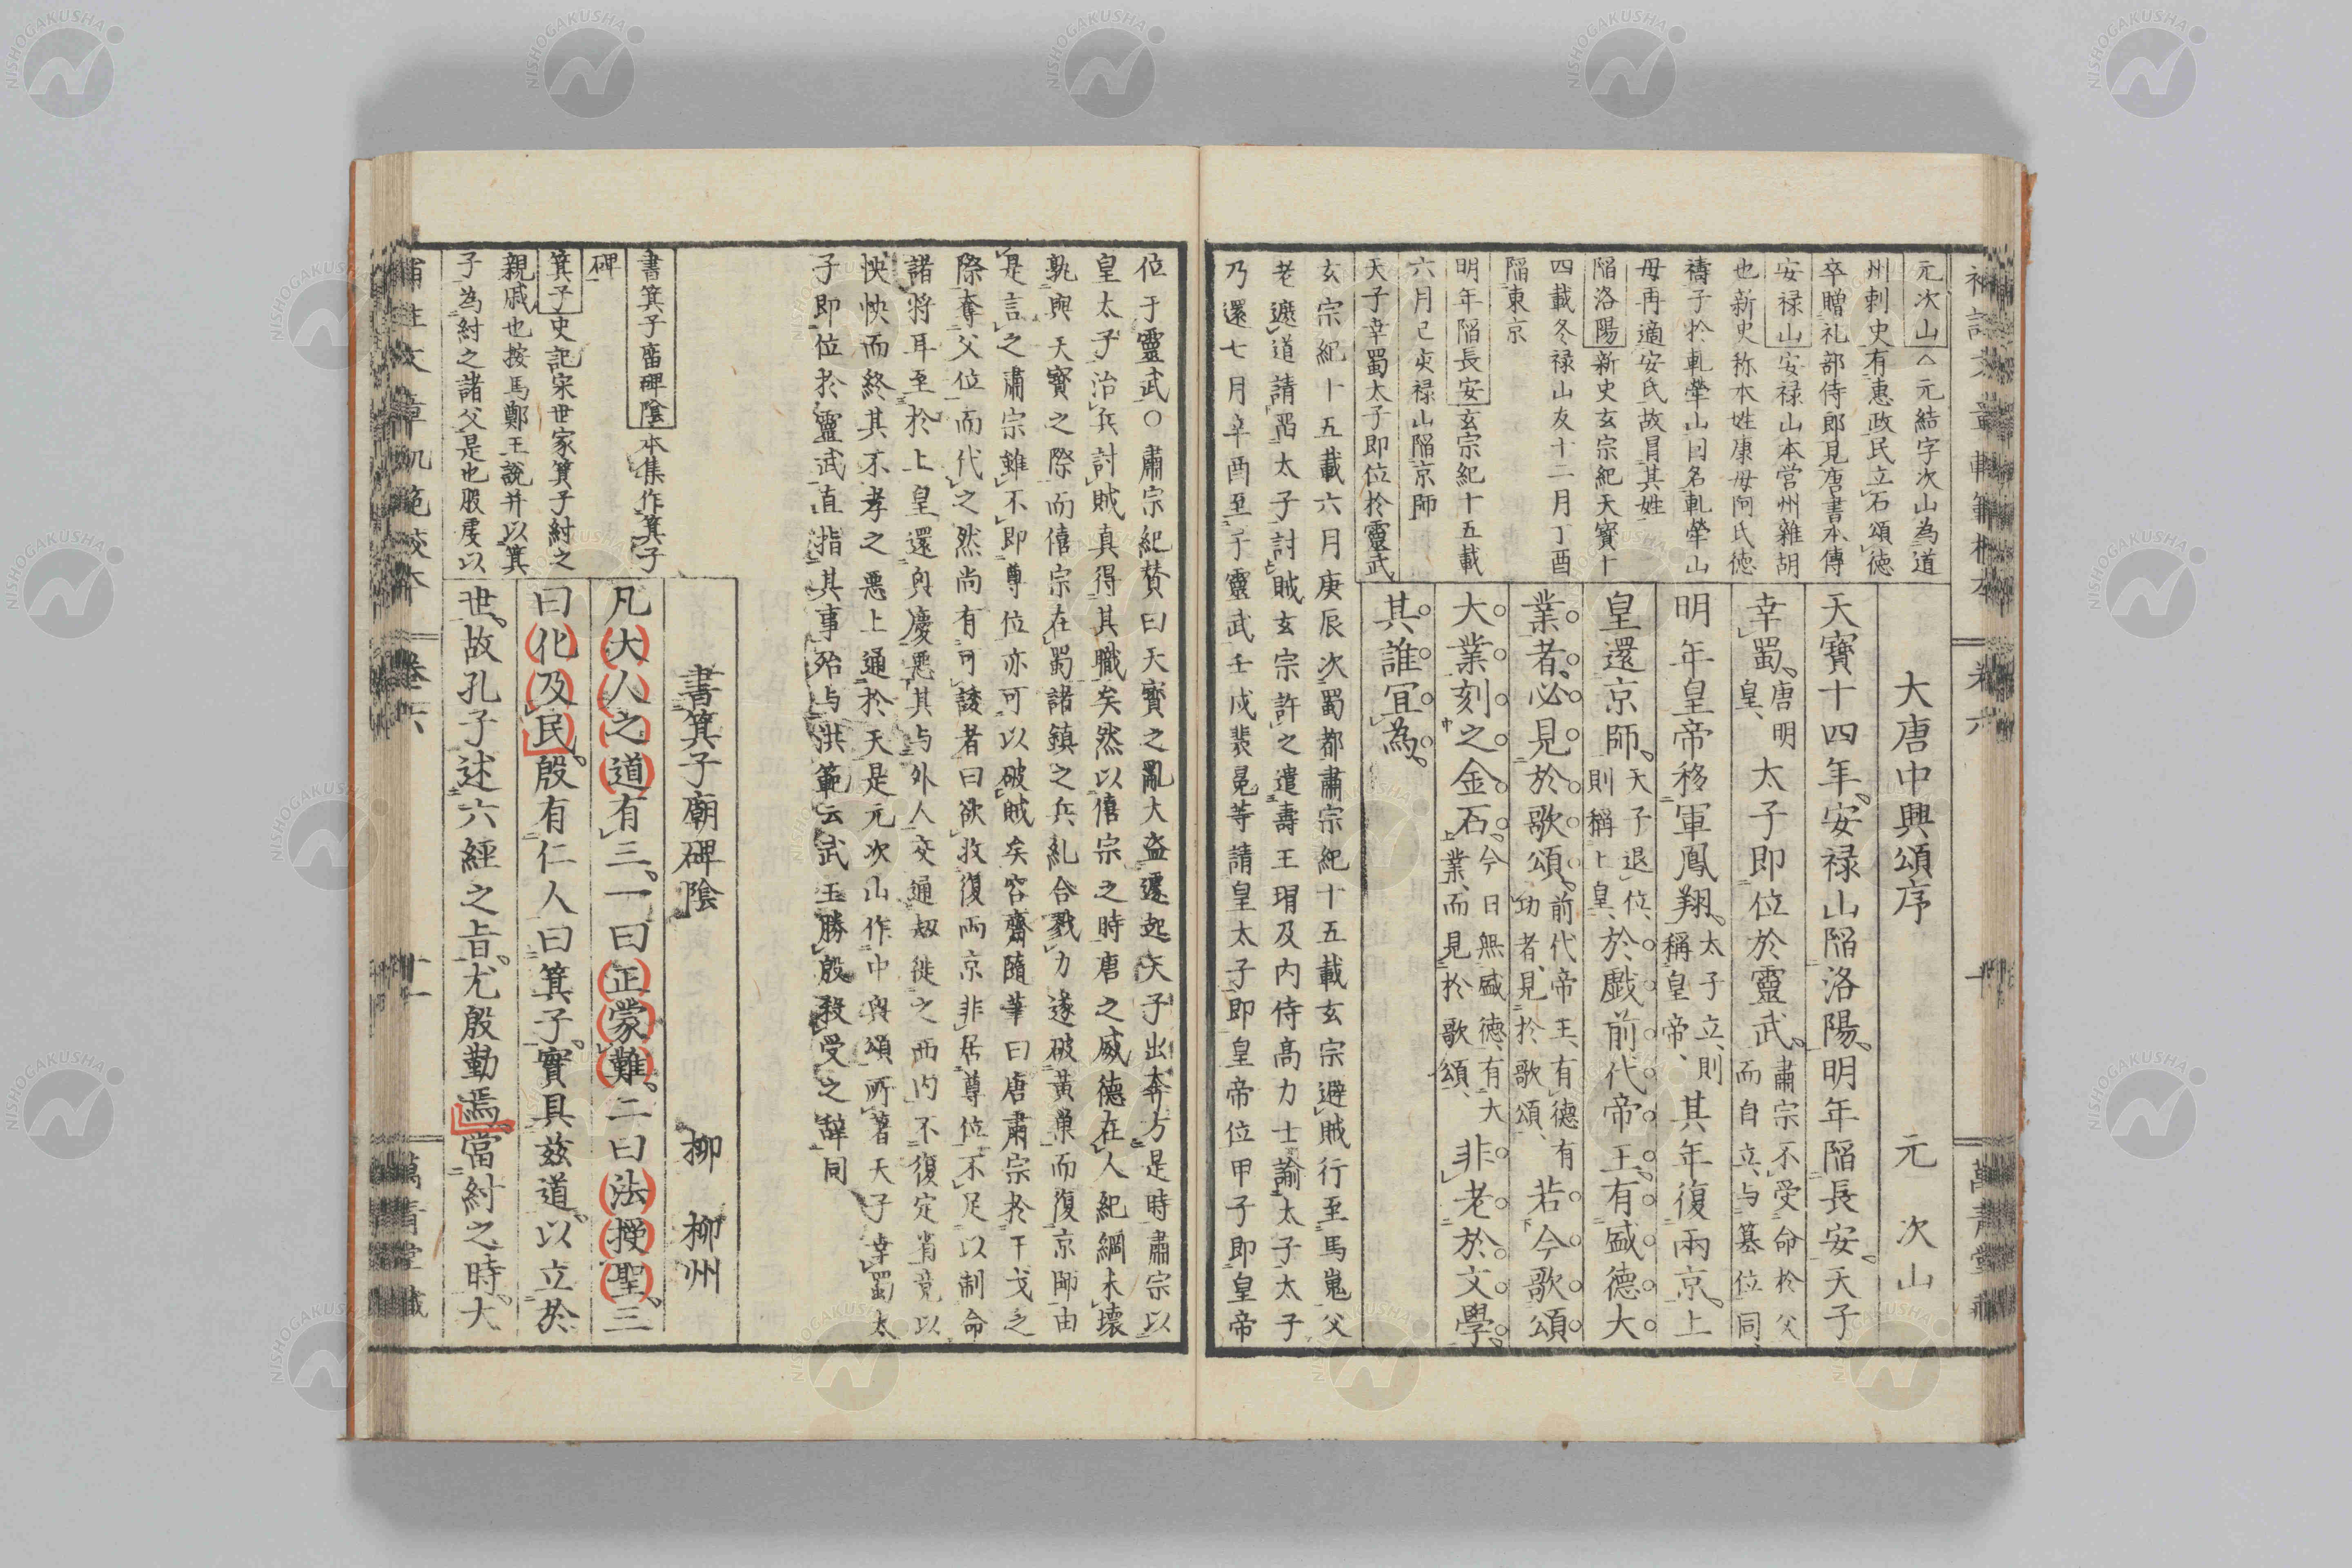 大唐中興頌序　元次山
天寶十四年、安禄山陥洛陽、明年陥長安、天子
幸蜀、唐明皇、太子即位於靈武、肅宗不受命於父而自立、与簒位同、
明年皇帝移軍鳳翔、太子立、則稱皇帝、其年復兩京、上
皇還京師、天子退位、則稱上皇、於戯前代帝王、有盛德大
業者、必見於歌頌、前代帝王、有德有功者、見於歌頌、若今歌頌
大業刻之金石、今日無盛德、有大業、而見於歌頌、非老於文學、
其誰冝為、
元次山△元結字次山為道
州刺史有惠政民立石頌德
卒贈礼部侍郎見唐書本傳
安禄山安禄山本営州雜胡
也新史称本姓康母阿氏德
禱子於軋犖山因名軋犖山
母再適安氏故冒其姓
陥洛陽新史玄宗紀天寳十
四載冬禄山反十二月丁酉
陥東京
明年陥長安玄宗紀十五載
六月己亥禄山陥京師
天子幸蜀太子即位於靈武
玄宗紀十五載六月庚辰次蜀都肅宗紀十五載玄宗避賊行至馬嵬父
老遮道請留太子討賊玄宗許之遣壽王瑁及内侍高力士諭太子太子
乃還七月辛酉至于靈武壬戌裴冕等請皇太子即皇帝位甲子即皇帝
位于靈武○肅宗紀賛曰天寳之亂大盗遽起天子出奔方是時肅宗以
皇太子治兵討賊真得其職矣然以僖宗之時唐之威德在人紀綱未壊
孰與天寳之際而僖宗在蜀諸鎮之兵糺合戮力遂破黄巣而復京師由
是言之肅宗雖不即尊位亦可以破賊矣容齋随筆曰唐肅宗於干戈之
際奪父位而代之然尚有可諉者曰欲收復兩京非居尊位不足以制命
諸將耳至於上皇還與慶惡其与外人交通劫徙之西内不復定省竟以
怏怏而終其不孝之惡上通於天是元次山作中興頌所著天子幸蜀太
子即位於靈武直指其事殆与洪範云武王勝殷殺受之辞同
書箕子廟碑陰　柳柳州
凡大人之道有三、一曰正蒙難、二曰法授聖、三
曰化及民、殷有仁人曰箕子、實具茲道、以立於
世、故孔子述六經之旨、尤殷勤焉當紂之時、大
書箕子廟碑陰本集作箕子
碑
箕子史記宋世家箕子紂之
親戚也按馬鄭王說并以箕
子為紂之諸父是也服虔以
補註文章軌範校本　卷六　十一　萬青堂藏